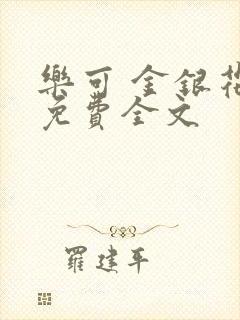 樂可 金銀花
免費全文
羅建平